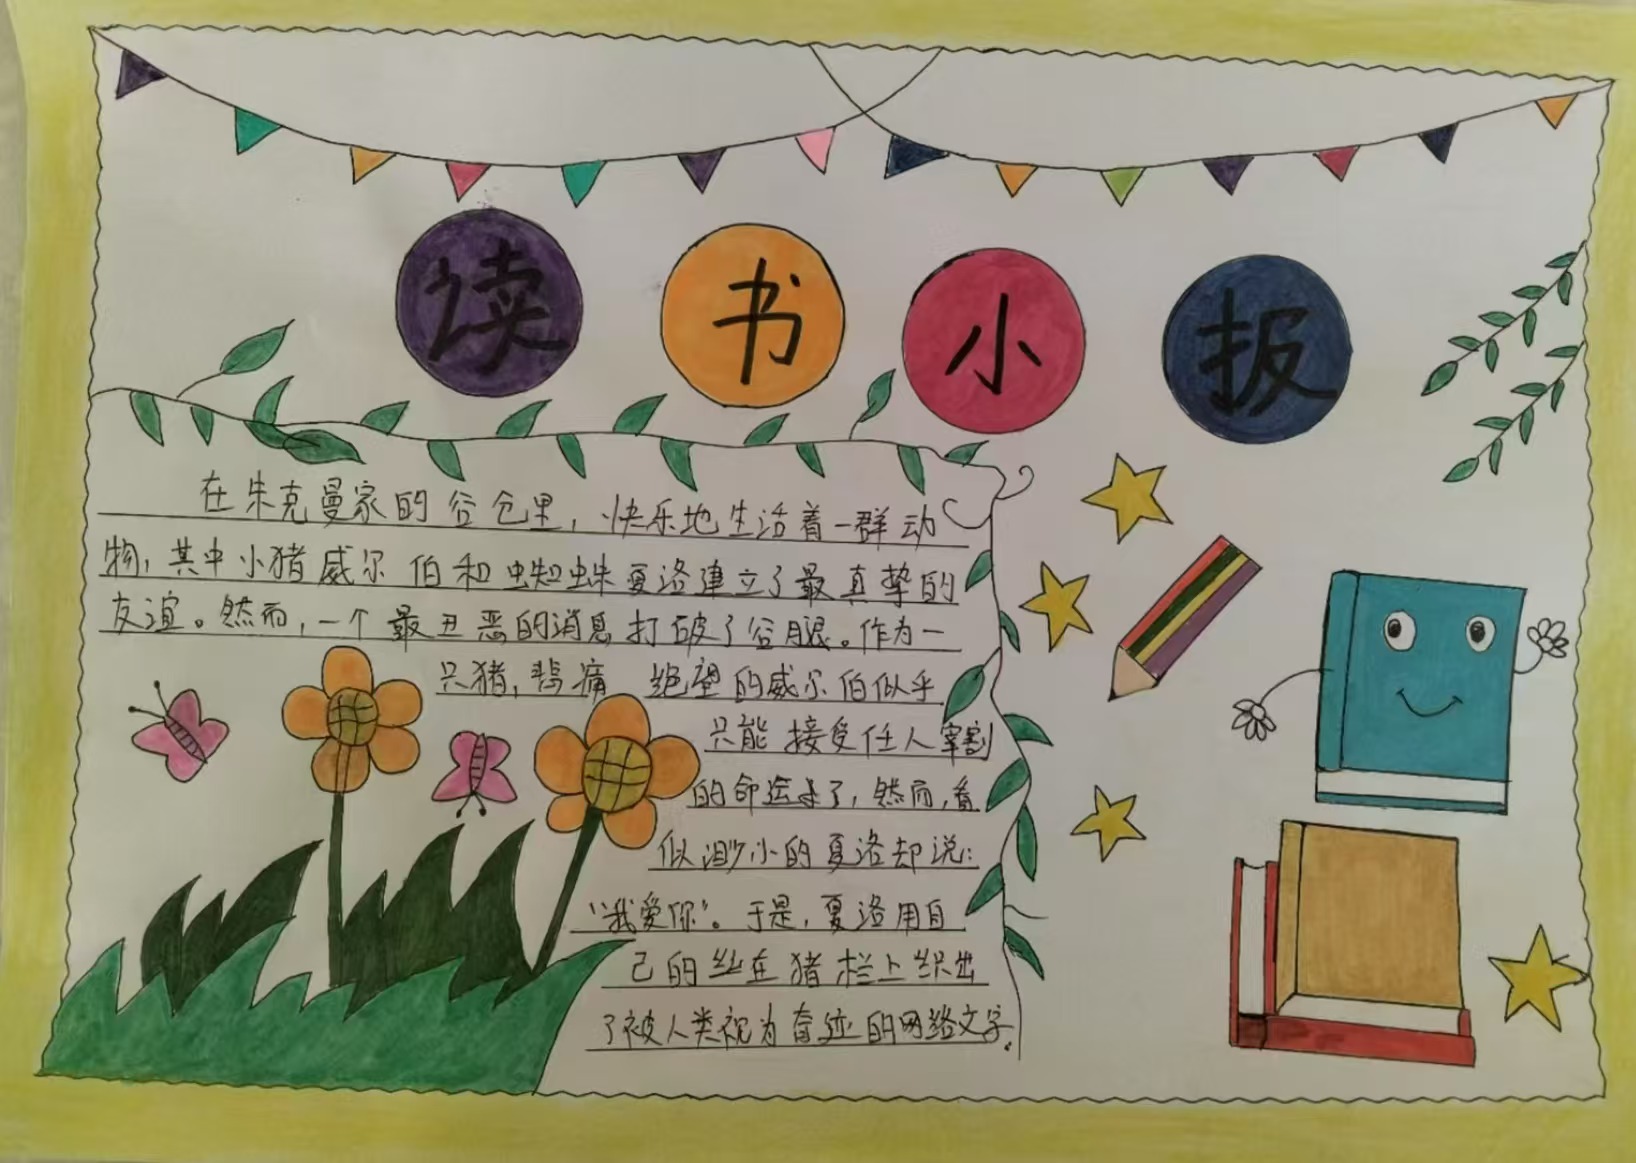 读书小报
在朱克曼家的谷仓里，快乐地生活着一群动
物，其中小猪威尔伯和蜘蛛夏洛建立了最真挚的
友谊。然而，一个最丑恶的消息打破了谷腿。作为一
只猪，悲痛 绝望的威尔伯似乎
只能接受任人宰割
的命运了，然而，看
似渺小的夏洛却说：
“我爱你”。于是，夏洛用自
己的丝在猪栏上织出
了被人类视为奇迹的网络文字.